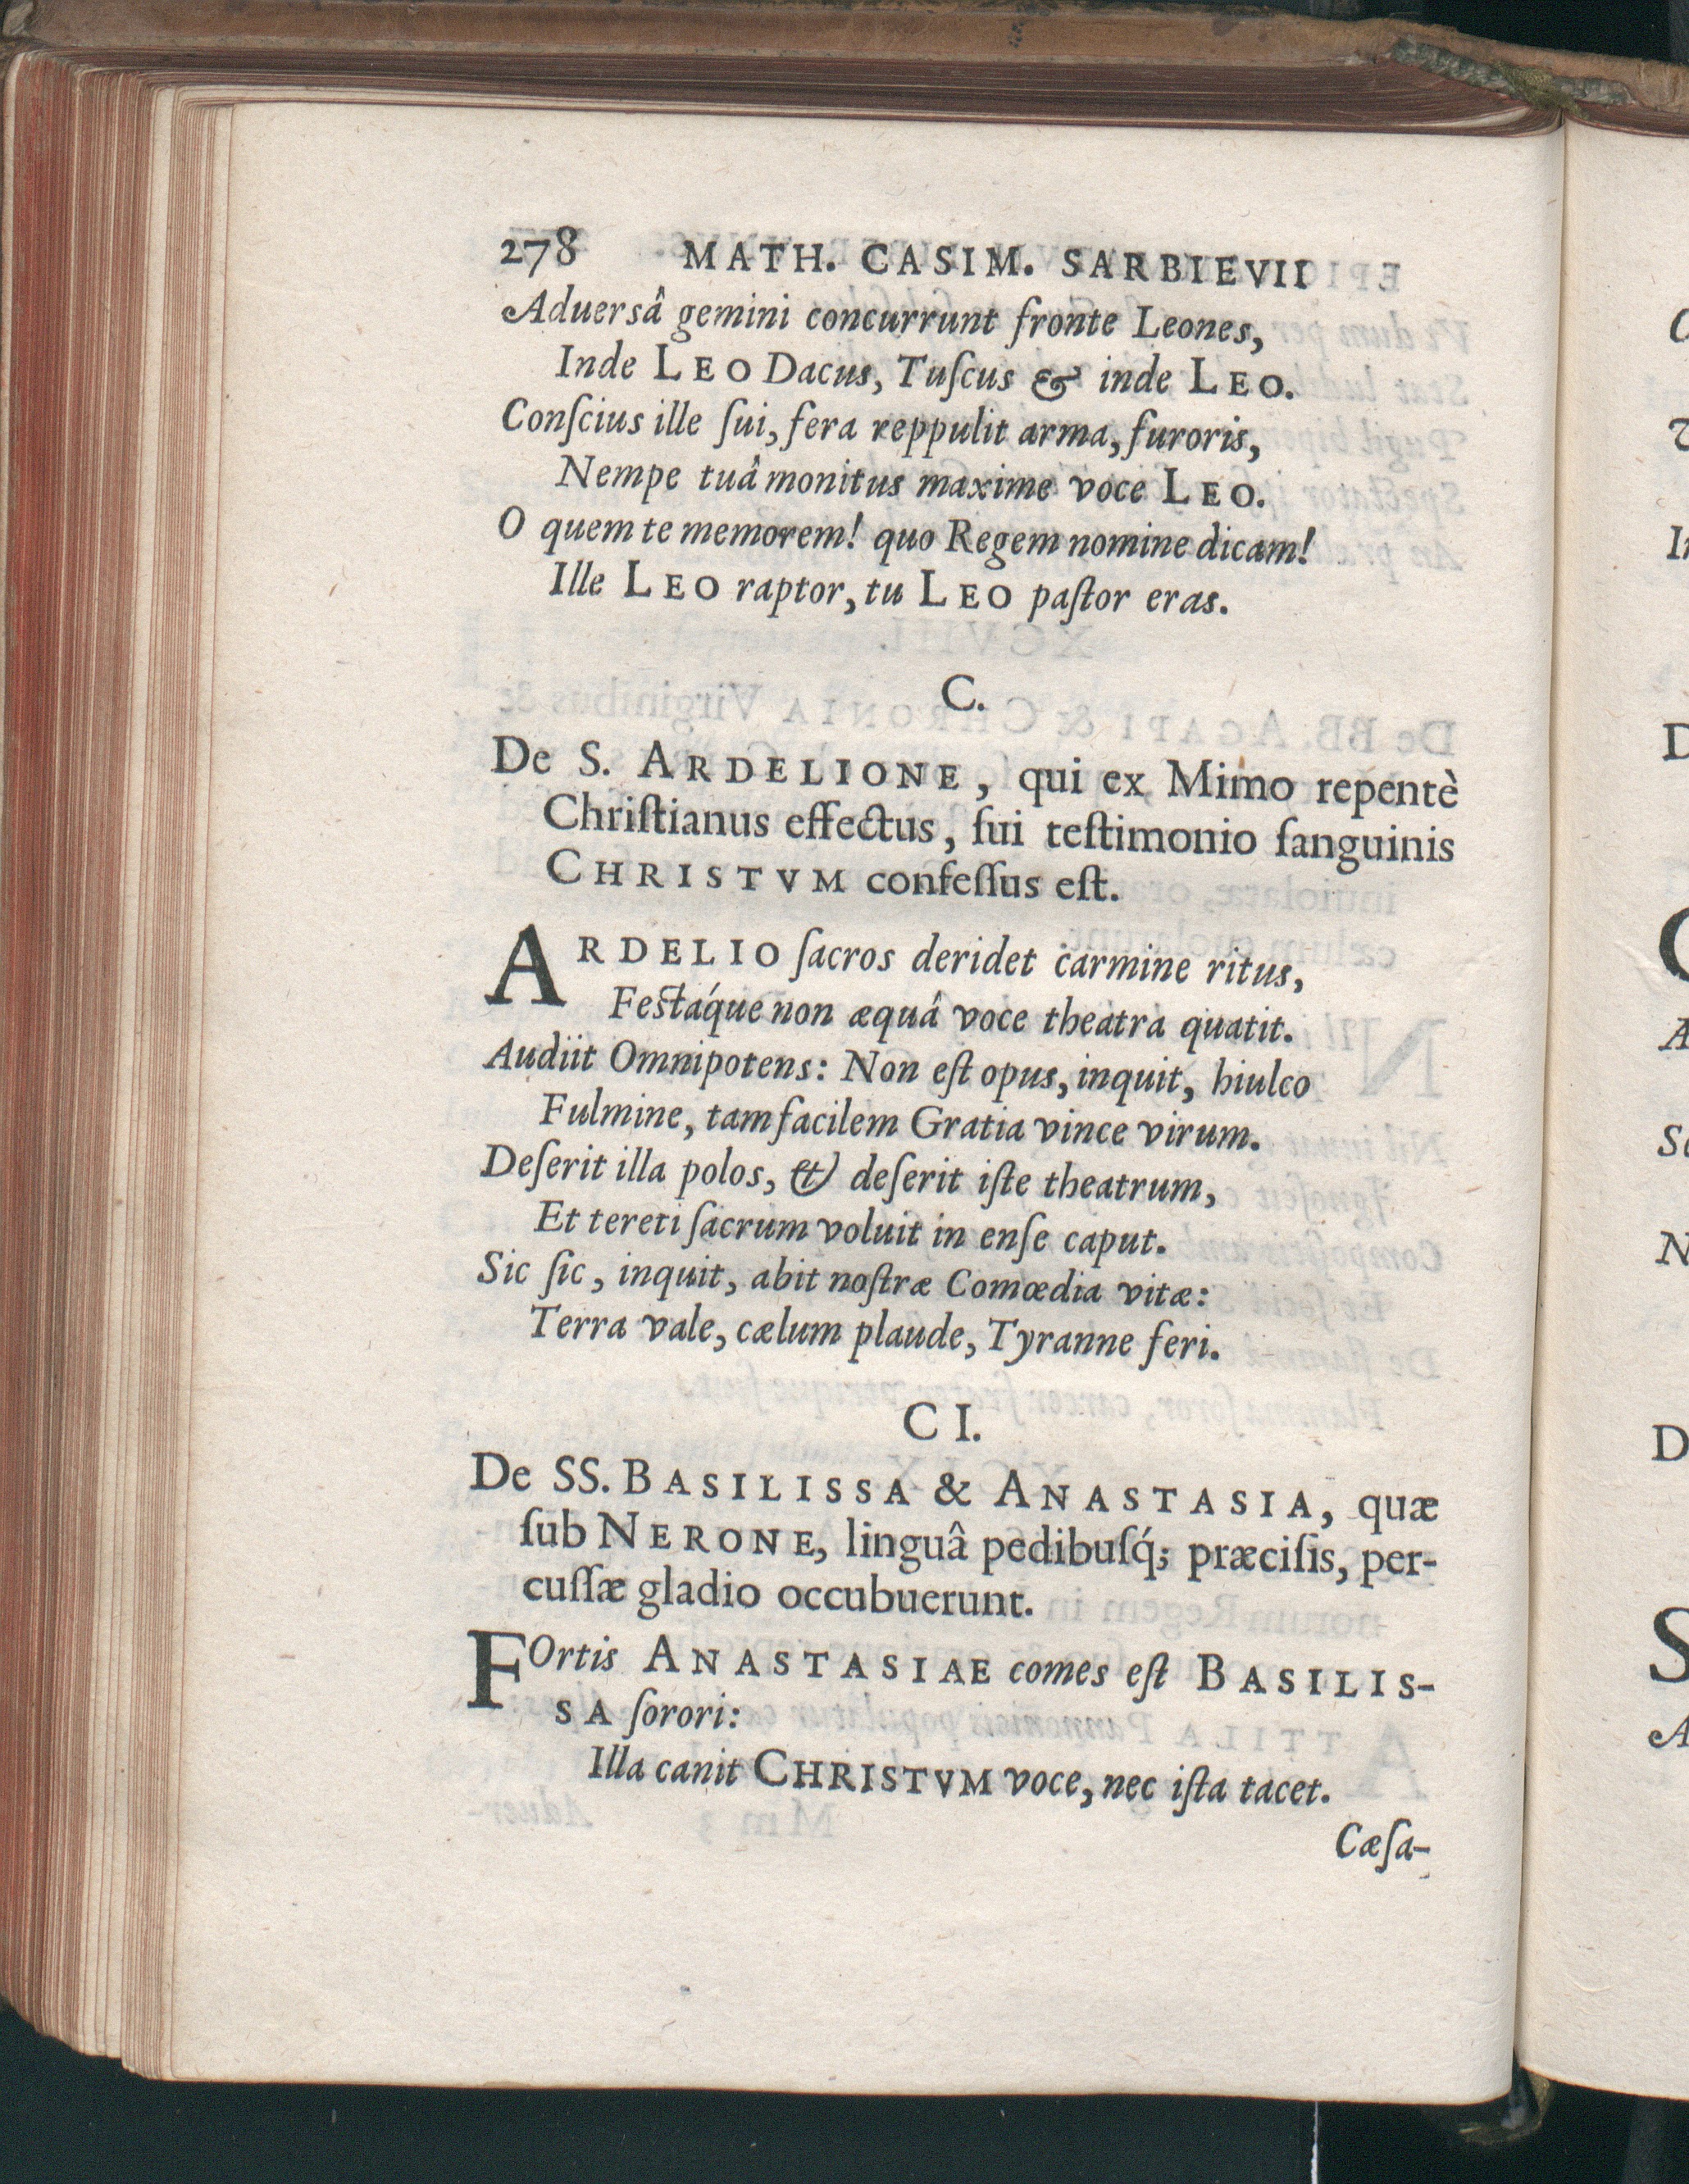 278 MATH. CASIM. SARBIEVII
Aduersâ gemini concurrunt fronte Leones,
Inde LEO Dacus, Tuſcus & inde LEO.
Conſcius ille ſui, fera reppulit arma, furoris,
Nempe tuâ monitus maxime voce LEO.
O quem te memorem! quo Regem nomine dicam!
Ille LEO raptor, tu LEO paſtor eras.
C.
De S. ARDELIONE, qui ex Mimo repentè
Chriſtianus effectus, ſui teſtimonio ſanguinis
CHRISTVM confeſſus eſt.
ARDELIO ſacros deridet carmine ritus,
Feſtáque non æquâ voce theatra quatit.
Audiit Omnipotens: Non eſt opus, inquit, hiulco
Fulmine, tam facilem Gratia vince virum.
Deſerit illa polos, & deſerit iſte theatrum,
Et tereti ſacrum voluit in enſe caput.
Sic ſic, inquit, abit noſtræ Comœdia vitæ:
Terra vale, cælum plaude, Tyranne feri.
CI.
De SS. BASILISSA & ANASTASIA, quæ
ſub NERONE, linguâ pedibuſq́; præciſis, per-
cuſſæ gladio occubuerunt.
FOrtis ANASTASIAE comes eſt BASILIS-
SA ſorori:
Illa canit CHRISTVM voce, nec iſta tacet.
Cæſa-